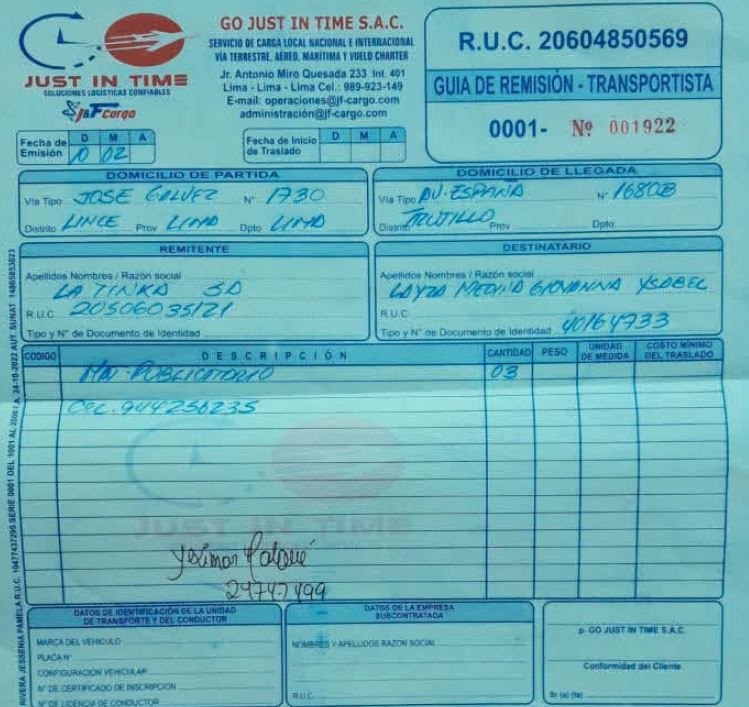 JUST IN TIME
SOLUCIONES LOGISTICAS CONFIABLES
J&F cargo
GO JUST IN TIME S.A.C.
SERVICIO DE CARGA LOCAL NACIONAL E INTERNACIONAL
VIA TERRESTRE, AÉREO, MARÍTIMA Y VUELO CHARTER
Jr. Antonio Miro Quesada 233 Int. 401
Lima - Lima - Lima Cel.: 989-923-149
E-mail: operaciones@jf-cargo.com
administración@jf-cargo.com
R.U.C. 20604850569
GUIA DE REMISIÓN - TRANSPORTISTA
0001- Nº 001922
Fecha de Emisión D M A
10 02
Fecha de Inicio de Traslado D M A
DOMICILIO DE PARTIDA
Vía Tipo JOSE GALVEZ N° 1730
Distrito LINCE Prov LIMA Dpto LIMA
DOMICILIO DE LLEGADA
Vía Tipo AV. ESPAÑA N° 1680B
Distrito TRUJILLO Prov Dpto
REMITENTE
Apellidos Nombres / Razón social
LA TINKA SA
R.U.C. 20506035121
Tipo y N° de Documento de Identidad
DESTINATARIO
Apellidos Nombres / Razón social
LAYZA MEDINA GIOVANNA YSABEL
R.U.C.
Tipo y N° de Documento de Identidad 40164733
CODIGO DESCRIPCIÓN CANTIDAD PESO UNIDAD DE MEDIDA COSTO MÍNIMO DEL TRASLADO
MAT. PUBLICITARIO 03
CEL. 944256235
JUST IN TIME
24747499
DATOS DE IDENTIFICACIÓN DE LA UNIDAD DE TRANSPORTE Y DEL CONDUCTOR
MARCA DEL VEHICULO
PLACA N°
CONFIGURACION VEHICULAR
N° DE CERTIFICADO DE INSCRIPCION
N° DE LICENCIA DE CONDUCTOR
DATOS DE LA EMPRESA SUBCONTRATADA
NOMBRES Y APELLIDOS RAZON SOCIAL
R.U.C.
p. GO JUST IN TIME S.A.C.
Conformidad del Cliente
Sr (a) (ta)